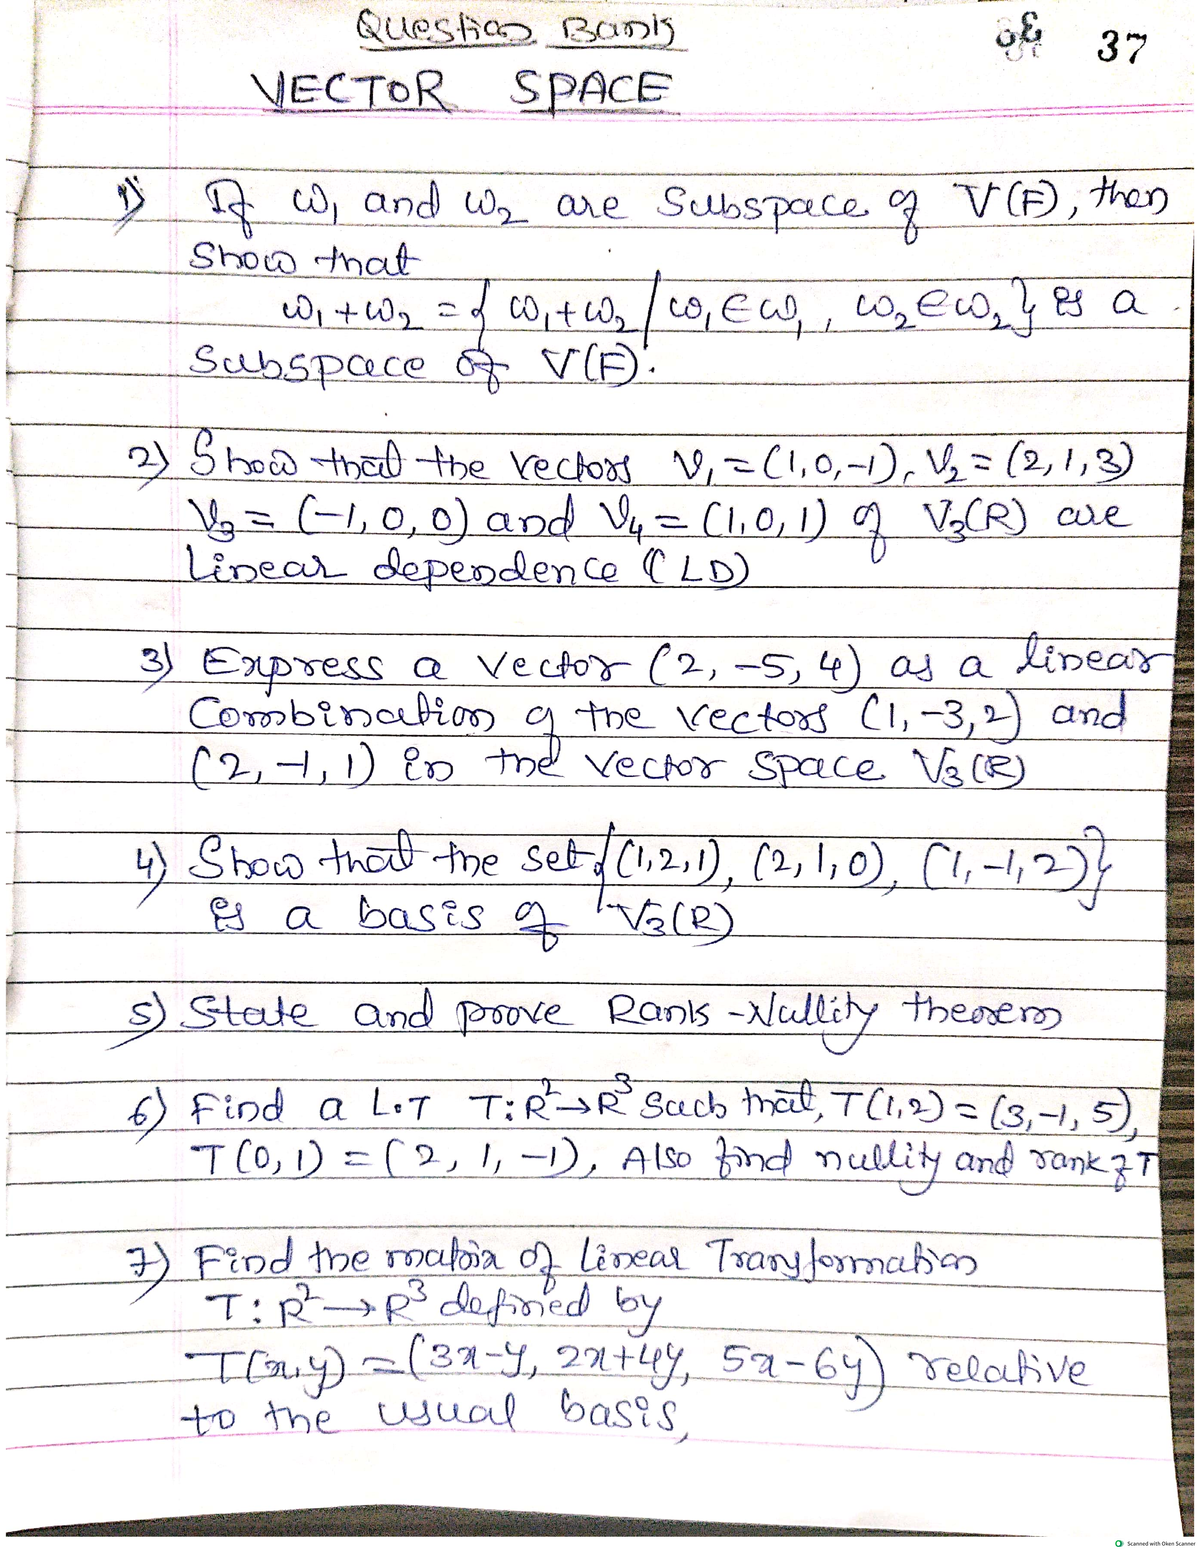 Question Bank
37
VECTOR SPACE
1) If W₁ and W₂ are Subspace of V(F), then
Show that
W₁+W₂ = { w₁+w₂ / w₁∈W₁, w₂∈W₂} is a
Subspace of V(F).
2) Show that the vectors V₁=(1,0,-1), V₂=(2,1,3)
V₃=(-1,0,0) and V₄=(1,0,1) of V₃(R) are
Linear dependence (LD)
3) Express a vector (2,-5,4) as a linear
Combination of the vectors (1,-3,2) and
(2,-1,1) in the vector space V₃(R)
4) Show that the set {(1,2,1), (2,1,0), (1,-1,2)}
is a basis of V₃(R)
5) State and prove Rank-Nullity theorem
6) Find a L.T T:R²→R³ Such that, T(1,2)=(3,-1,5),
T(0,1)=(2,1,-1), Also find nullity and rank of T
7) Find the matrix of Linear Transformation
T:R²→R³ defined by
T(x,y)=(3x-y, 2x+4y, 5x-6y) relative
to the usual basis,
Scanned with Oken Scanner